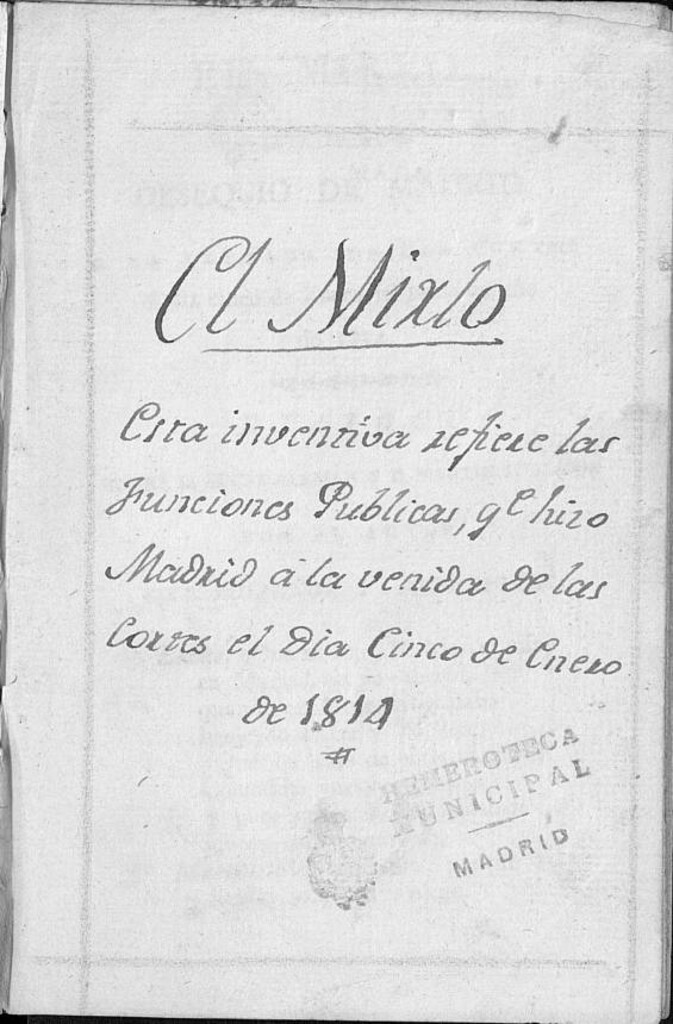 El Mixto
Esta inventiva refiere las
Funciones Publicas, qe hizo
Madrid á la venida de las
Cortes el Dia Cinco de Enero
de 1814
HEMEROTECA
MUNICIPAL
MADRID